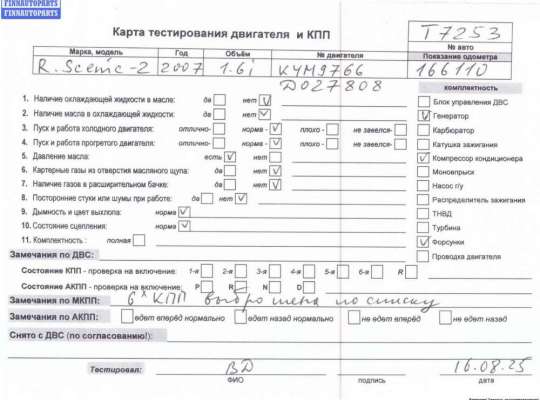 FINNAUTOPARTS
FINNAUTOPARTS
Карта тестирования двигателя и КПП
T7253
№ авто
Марка, модель Год Объём № двигателя Показание одометра
R. Scenic-2 2007 1.6i K4M9766 166110
D027808
комплектность
1. Наличие охлаждающей жидкости в масле: да нет V
2. Наличие масла в охлаждающей жидкости: да нет V
3. Пуск и работа холодного двигателя: отлично- норма - V плохо - не завелся-
4. Пуск и работа прогретого двигателя: отлично- норма - V плохо - не завелся-
5. Давление масла: есть V нет
6. Картерные газы из отверстия масляного щупа: да нет V
7. Наличие газов в расширительном бачке: да нет V
8. Посторонние стуки или шумы при работе: да нет V
9. Дымность и цвет выхлопа: норма V
10. Состояние сцепления: норма V
11. Комплектность : полная
Блок управления ДВС
V Генератор
Карбюратор
Катушка зажигания
V Компрессор кондиционера
Моновпрыск
Насос г/у
Распределитель зажигания
ТНВД
Турбина
V Форсунки
Проводка двигателя
Замечания по ДВС:
Состояние КПП - проверка на включение: 1-я 2-я 3-я 4-я 5-я 6-я R
Состояние АКПП - проверка на включение: P R N D
Замечания по МКПП: 6 КПП по списку
Замечания по АКПП: едет вперёд нормально едет назад нормально не едет вперёд не едет назад
Снято с ДВС (по согласованию!):
Тестировал: ВД 16.08.25
ФИО подпись дата